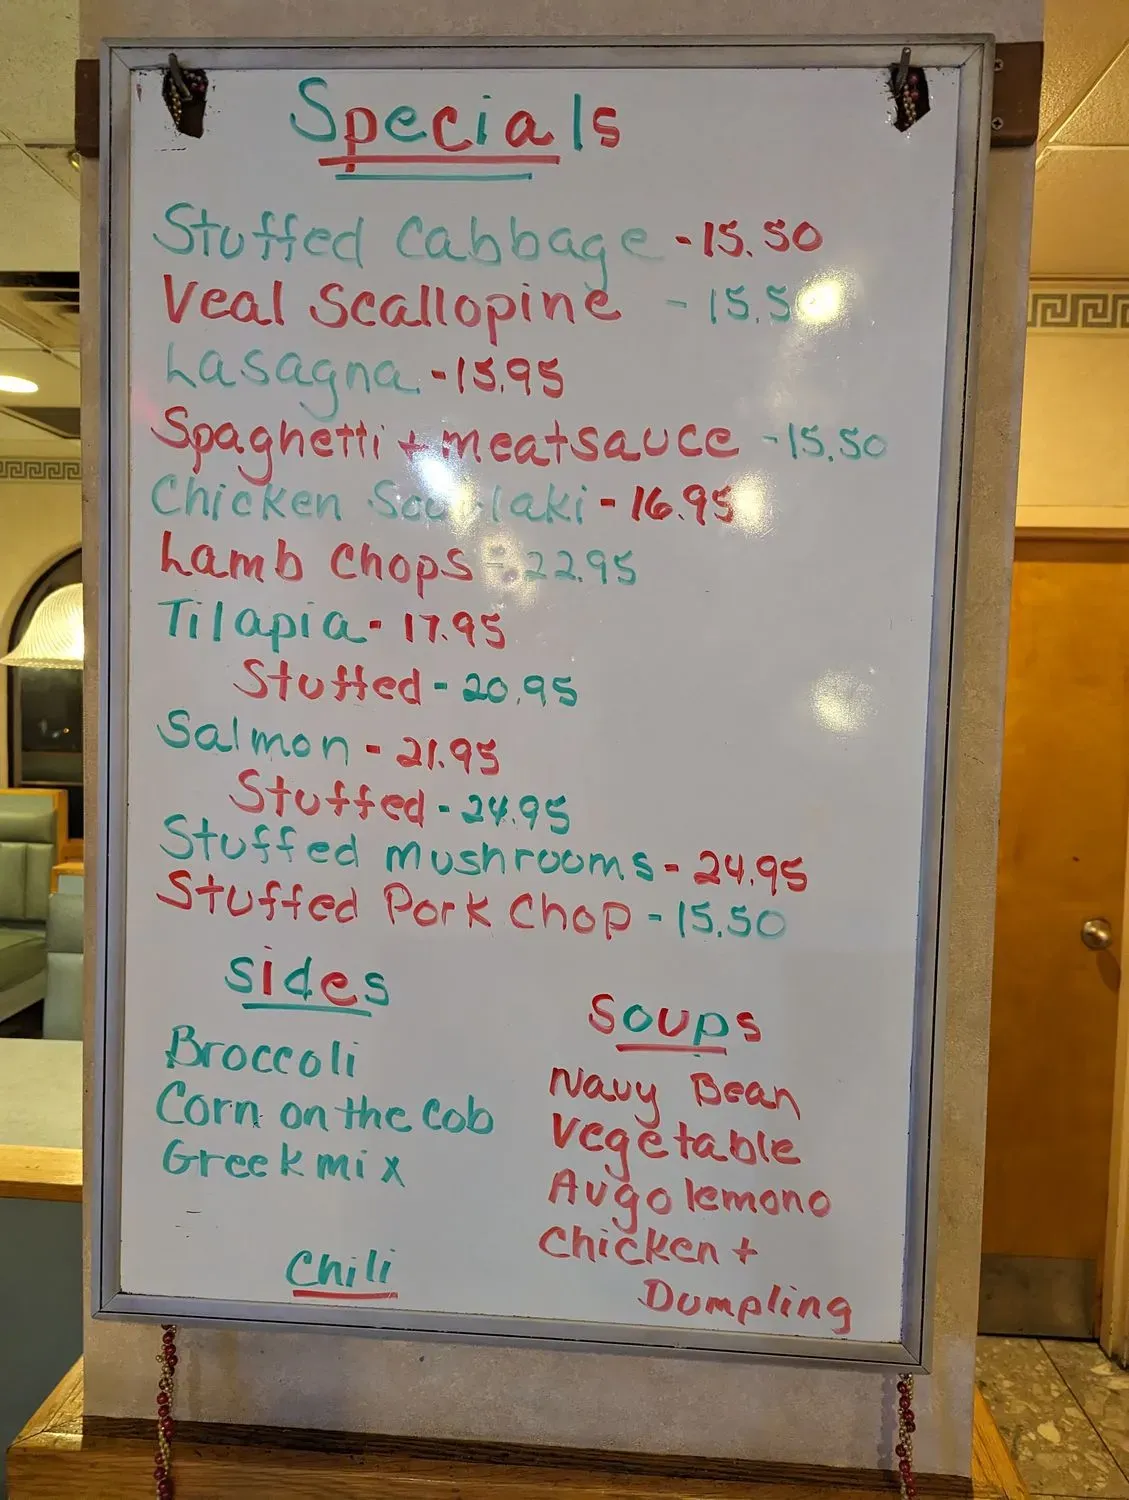 Specials
Stuffed Cabbage - 15.50
Veal Scallopine - 15.50
Lasagna - 15.95
Spaghetti + meatsauce - 15.50
Chicken Souvlaki - 16.95
Lamb Chops - 22.95
Tilapia - 17.95
Stuffed - 20.95
Salmon - 21.95
Stuffed - 24.95
Stuffed mushrooms - 24.95
Stuffed Pork Chop - 15.50
Sides
Broccoli
Corn on the Cob
Greek mix
Chili
Soups
Navy Bean
Vegetable
Augolemono
Chicken +
Dumpling